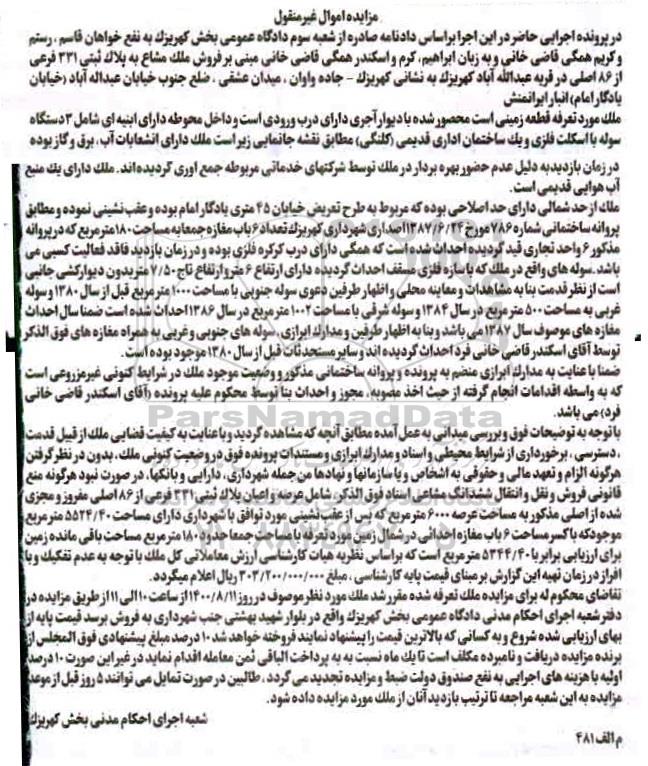 مزایده اموال غیرمنقول
در پرونده اجرایی حاضر در این اجرا براساس دادنامه صادره از شعبه سوم دادگاه عمومی بخش کهریزک به نفع خواهان قاسم ، رستم
و کریم همگی قاضی خانی و به زیان ابراهیم، کرم و اسکندر همگی قاضی خانی مبنی بر فروش ملک مشاع به پلاک ثبتی ۳۳۱ فرعی
از ۸۶ اصلی در قریه عبدالله آباد کهریزک به نشانی کهریزک - جاده واوان ، میدان عشقی ، ضلع جنوب خیابان عبداله آباد (خیابان
یادگار امام) انبار ایرانمنش
ملک مورد تعرفه قطعه زمینی است محصور شده با دیوار آجری دارای درب ورودی است و داخل محوطه دارای ابنیه ای شامل ۳ دستگاه
سوله با اسکلت فلزی و یک ساختمان اداری قدیمی (کلنگی) مطابق نقشه جانمایی زیر است ملک دارای انشعابات آب، برق و گاز بوده
در زمان بازدید به دلیل عدم حضور بهره بردار در ملک توسط شرکتهای خدماتی مربوطه جمع اوری گردیده اند. ملک دارای یک منبع
آب هوایی قدیمی است.
ملک از حد شمالی دارای حد اصلاحی بوده که مربوط به طرح تعریض خیابان ۴۵ متری یادگار امام بوده و عقب نشینی نموده و مطابق
پروانه ساختمانی شماره ۷۸۶ مورخ ۱۳۸۷/۶/۲۴ اصداری شهرداری کهریزک تعداد ۶ باب مغازه جمعا به مساحت ۱۸۰ متر مربع که در پروانه
مذکور ۶ واحد تجاری قید گردیده احداث شده است که همگی دارای درب کرکره فلزی بوده و در زمان بازدید فاقد فعالیت کسبی می
باشد. سوله های واقع در ملک که با سازه فلزی مسقف احداث گردیده دارای ارتفاع ۶ متر و ارتفاع تاج ۷/۵۰ متر بدون دیوارکشی جانبی
است از نظر قدمت بنا به مشاهدات و معاینه محلی و اظهار طرفین دعوی سوله جنوبی با مساحت ۱۰۰۰ متر مربع قبل از سال ۱۳۸۰ و سوله
غربی به مساحت ۵۰۰ متر مربع در سال ۱۳۸۴ و سوله شرقی با مساحت ۱۰۰۲ متر مربع در سال ۱۳۸۶ احداث شده است ضمنا سال احداث
مغازه های موصوف سال ۱۳۸۷ می باشد و بنا به اظهار طرفین و مدارک ابرازی سوله های جنوبی و غربی به همراه مغازه های فوق الذکر
توسط آقای اسکندر قاضی خانی فرد احداث گردیده اند و سایر مستحدثات قبل از سال ۱۳۸۰ موجود بوده است .
ضمنا با عنایت به مدارک ابرازی منضم به پرونده و پروانه ساختمانی مذکور و وضعیت موجود ملک در شرایط کنونی غیر مزروعی است
که به واسطه اقدامات انجام گرفته از حیث اخذ مصوبه، مجوز و احداث بنا توسط محکوم علیه پرونده (آقای اسکندر قاضی خانی
فرد) می باشد.
با توجه به توضیحات فوق و بررسی میدانی به عمل آمده مطابق آنچه که مشاهده گردید و با عنایت به کیفیت قضایی ملک از قبیل قدمت
، دسترسی ، برخورداری از شرایط محیطی و اسناد و مدارک ابرازی و مستندات پرونده فوق در وضعیت کنونی ملک، بدون در نظر گرفتن
هرگونه الزام و تعهد مالی و حقوقی به اشخاص و یا سازمانها و نهادها من جمله شهرداری، دارایی و بانکها، در صورت نبود هرگونه منع
قانونی فروش و نقل و انتقال ششدانگ مشاعی اسناد فوق الذکر شامل عرصه و اعیان پلاک ثبتی ۳۳۱ فرعی از ۸۶ اصلی مفروز و مجزی
شده از اصلی مذکور به مساحت عرصه ۶۰۰۰ متر مربع که پس از عقب نشینی مورد توافق با شهرداری دارای مساحت ۵۵۲۴/۴۰ متر مربع
موجود که با کسر مساحت ۶ باب مغازه احداثی در شمال زمین مورد تعرفه با مساحت جمعا حدود ۱۸۰ متر مربع مساحت باقی مانده زمین
برای ارزیابی برابر با ۵۳۴۴/۴۰ متر مربع است که براساس نظریه هیات کارشناسی ارزش معاملاتی کل ملک با توجه به عدم تفکیک و یا
افراز در زمان تهیه این گزارش بر مبنای قیمت پایه کارشناسی ، مبلغ ۳۰۳/۲۰۰/۰۰۰/۰۰۰ ریال اعلام میگردد.
تقاضای محکوم له برای مزایده ملک تعرفه شده مقرر شد ملک مورد نظر موصوف در روز ۱۴۰۰/۸/۱۱ از ساعت ۱۰ الی ۱۱ از طریق مزایده در
دفتر شعبه اجرای احکام مدنی دادگاه عمومی بخش کهریزک واقع در بلوار شهید بهشتی جنب شهرداری به فروش برسد قیمت پایه از
بهای ارزیابی شده شروع و به کسانی که بالاترین قیمت را پیشنهاد نمایند فروخته خواهد شد ۱۰ درصد مبلغ پیشنهادی فوق المجلس از
برنده مزایده دریافت و نامبرده مکلف است تا یک ماه نسبت به به پرداخت الباقی ثمن معامله اقدام نماید در غیر این صورت ۱۰ درصد
اولیه با هزینه های اجرایی به نفع صندوق دولت ضبط و مزایده تجدید می گردد ، طالبین در صورت تمایل می توانند ۵ روز قبل از موعد
مزایده به این شعبه مراجعه تا ترتیب بازدید آنان از ملک مورد مزایده داده شود.
شعبه اجرای احکام مدنی بخش کهریزک
م الف ۴۸۱
ParsNamadData